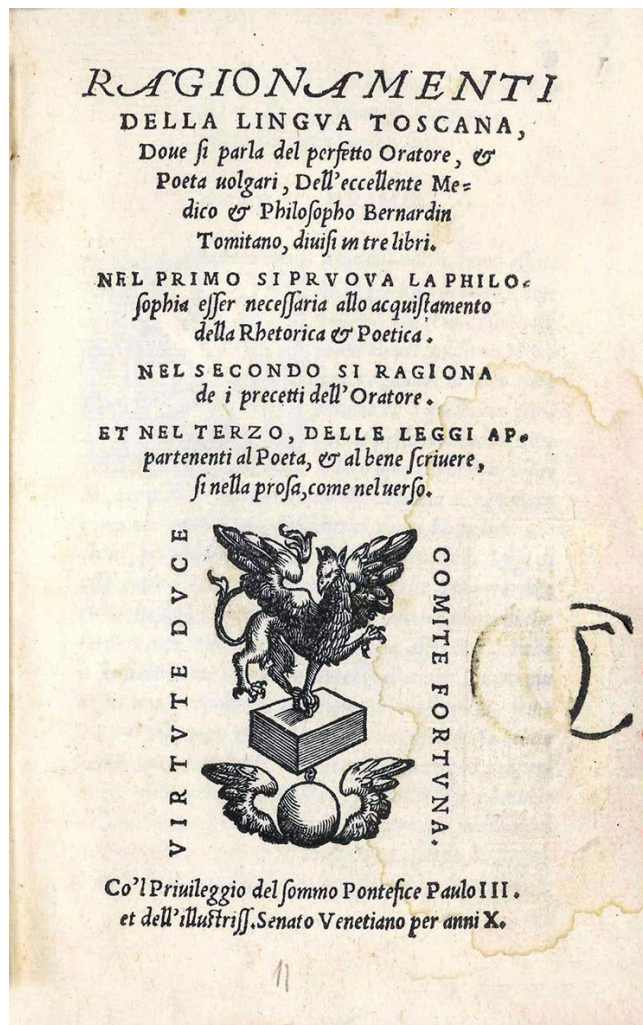 RAGIONAMENTI
DELLA LINGVA TOSCANA,
Doue ſi parla del perfetto Oratore, &
Poeta uolgari, Dell'eccellente Me=
dico & Philoſopho Bernardin
Tomitano, diuiſi in tre libri.
NEL PRIMO SI PRVOVA LA PHILO=
ſophia eſſer neceſſaria allo acquiſtamento
della Rhetorica & Poetica.
NEL SECONDO SI RAGIONA
de i precetti dell'Oratore.
ET NEL TERZO, DELLE LEGGI AP=
partenenti al Poeta, & al bene ſcriuere,
ſi nella proſa, come nel uerſo.
VIRTVTE DVCE
COMITE FORTVNA.
Co'l Priuileggio del ſommo Pontefice Paulo III.
et dell'illuſtriſſ. Senato Venetiano per anni X.